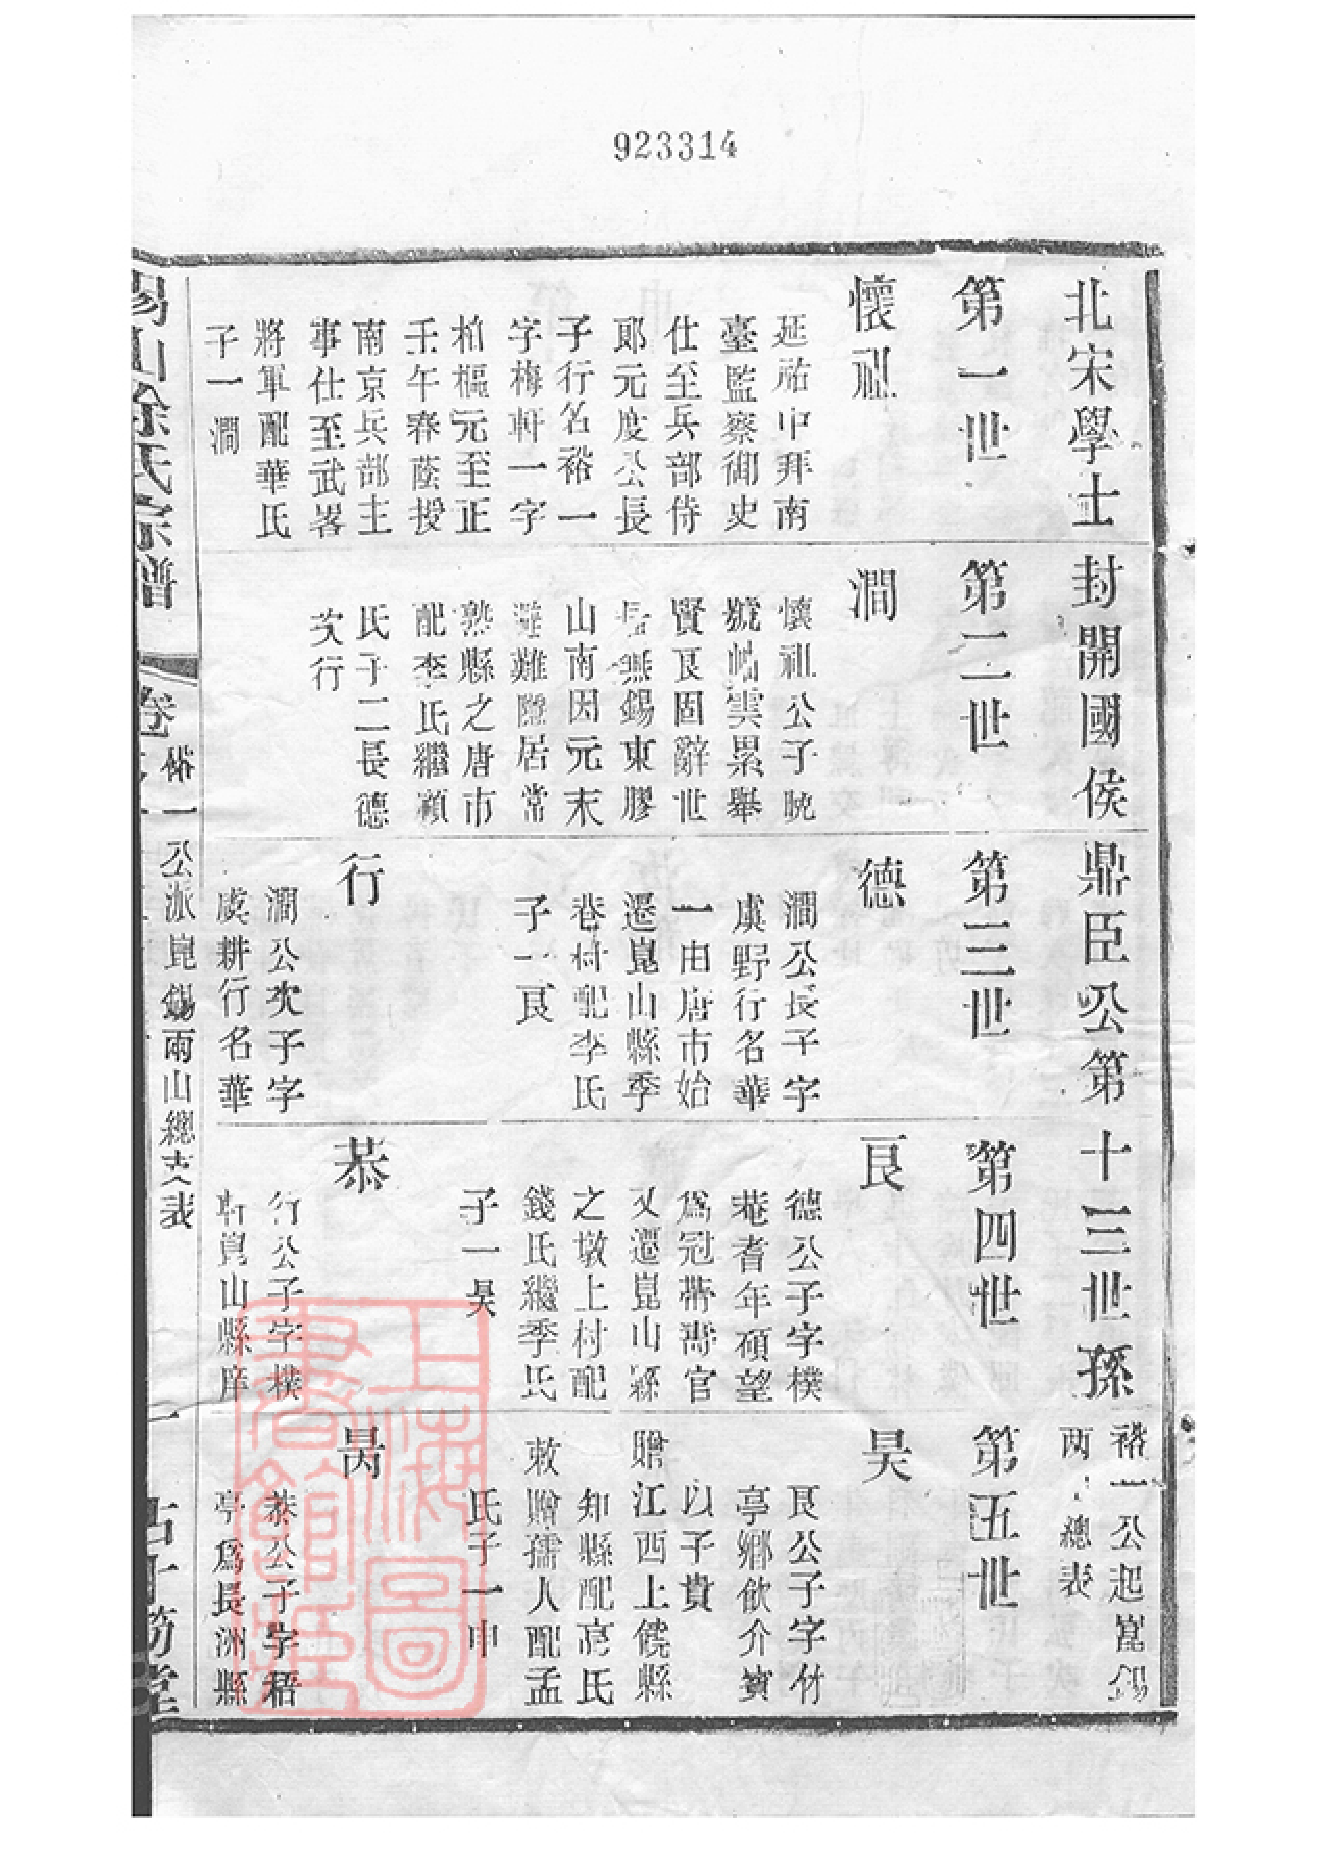 923314
北宋學士封開國侯鼎臣公第十三世孫
裕一公起崑錫
兩山總表
第一世
懷祖
延祐中拜南
臺監察御史
仕至兵部侍
郎元度公長
子行名裕一
字梅軒一字
柏樞元至正
壬午春蔭授
南京兵部主
事仕至武畧
將軍配華氏
子一澗
第二世
澗
懷祖公子號
岫雲累舉
賢良固辭世
居無錫東膠
山南因元末
避難隱居常
熟縣之唐市
配李氏繼顧
氏子二長德
次行
第三世
德
澗公長子字
虞野行名華
一由唐市始
遷崑山縣季
巷村配李氏
子一良
行
澗公次子字
虞耕行名華
第四世
良
德公子字樸
菴耆年碩望
為冠帶壽官
又遷崑山縣
之墩上村配
錢氏繼季氏
子一昊
恭
行公子字樸
崑山縣庠
第五世
昊
良公子字竹
亭鄉飲介賓
以子貴
贈江西上饒縣
知縣配高氏
敕贈孺人配孟
氏子一申
昺
恭公子字梧
亭為長洲縣
錫山徐氏宗譜
卷
裕一公派崑錫兩山總世表
一
上海圖書館藏